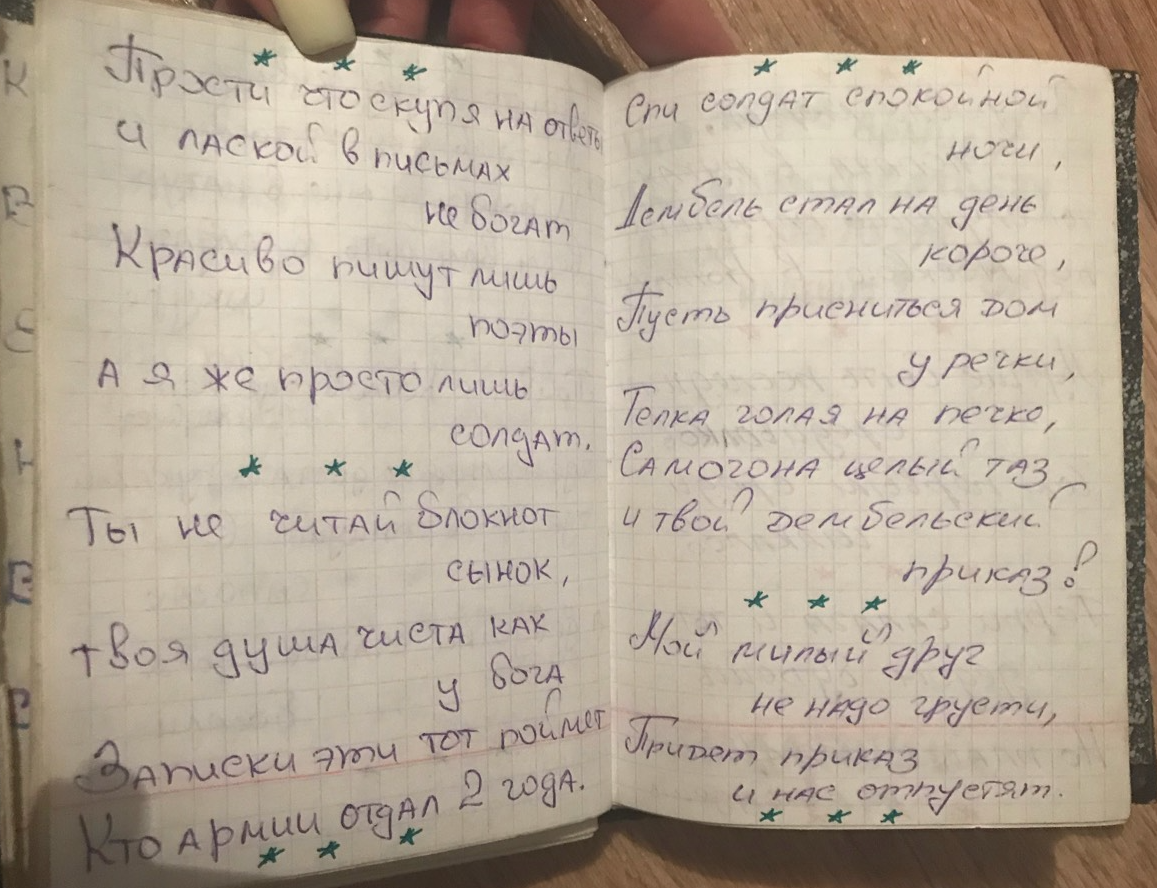 * * *
Прости что скуп я на ответы
и лаской в письмах
не богат
Красиво пишут лишь
поэты
А я же просто лишь
солдат.
* * *
Ты не читай блокнот
сынок,
твоя душа чиста как
у бога
Записки эти тот поймет
Кто армии отдал 2 года.
* * *
* * *
Спи солдат спокойной
ночи,
Дембель стал на день
короче,
Пусть присниться дом
у речки,
Телка голая на печке,
Самогона целый таз
и твой дембельский
приказ!
* * *
Мой милый друг
не надо грусти,
Придет приказ
и нас отпустят.
* * *